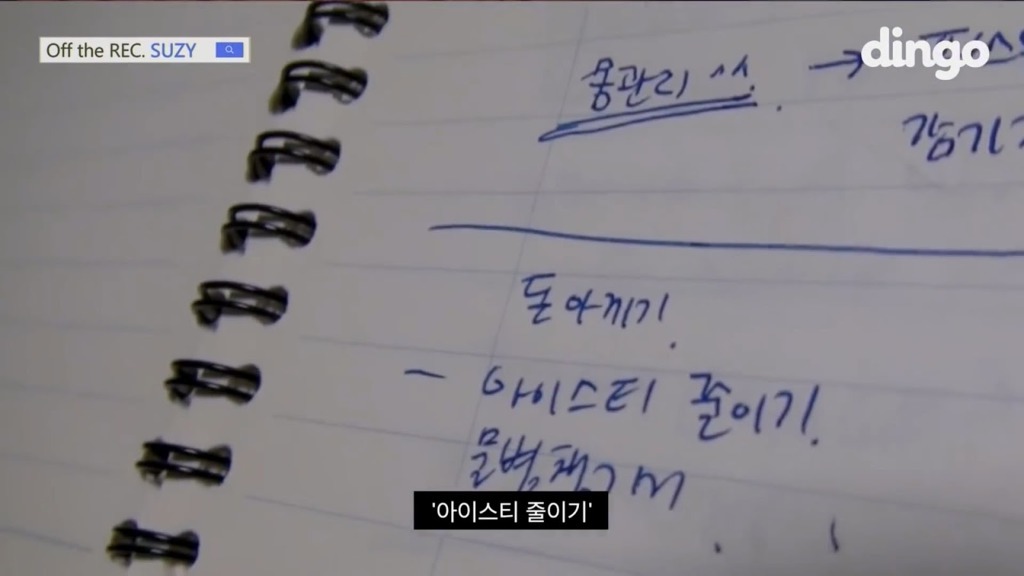 Off the REC. SUZY
dingo
몸관리 ^^.
→
감기
돈 아끼기.
- 아이스티 줄이기.
물병 챙겨서
'아이스티 줄이기'